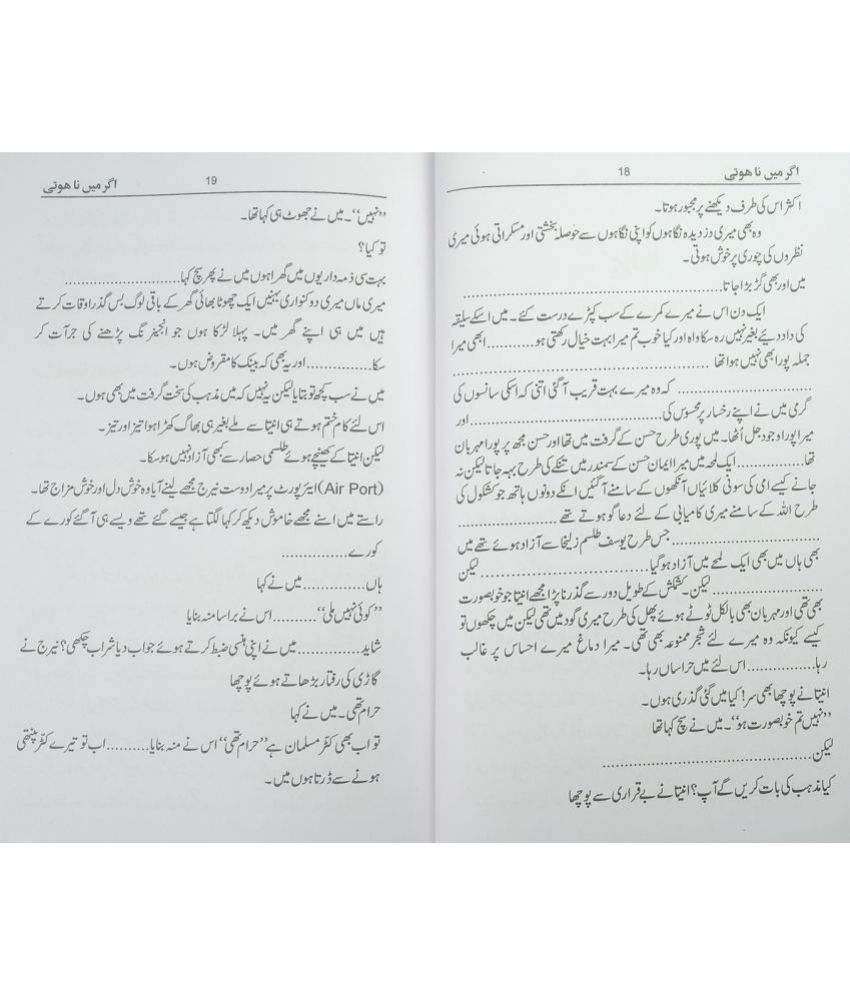 اگر میں نا ھوتی 18
اکثر اس کی طرف دیکھنے پر مجبور ہوتا۔
وہ بھی میری دزدیدہ نگاہوں کو اپنی نگاہوں سے حوصلہ بخشتی اور مسکراتی ہوئی میری
نظروں کی چوری پر خوش ہوتی۔
میں اور بھی گڑبڑا جاتا..............................................
ایک دن اس نے میرے کمرے کے سب کپڑے درست کئے۔ میں اسکے سلیقہ
کی داد دیئے بغیر نہیں رہ سکا واہ اور کیا خوب تم میرا بہت خیال رکھتی ہو............ابھی میرا
جملہ پورا بھی نہیں ہوا تھا ..............................................
.............................. کہ وہ میرے بہت قریب آگئی اتنی کہ اسکی سانسوں کی
گرمی میں نے اپنے رخسار پر محسوس کی..............................اور
میرا پورا وجود جل اُٹھا۔ میں پوری طرح حسن کے گرفت میں تھا اور حسن مجھ پر پورا مہربان
تھا...............ایک لمحہ میں میرا ایمان حسن کے سمندر میں تنکے کی طرح بہہ جاتا لیکن نہ
جانے کیسے امی کی سونی کلائیاں آنکھوں کے سامنے آگئیں انکے دونوں ہاتھ جو کشکول کی
طرح اللہ کے سامنے میری کامیابی کے لئے دعا گو ہوتے تھے ....................
.............................. جس طرح یوسف طلسم زلیخا سے آزاد ہوئے تھے میں
بھی ہاں میں بھی ایک لمحے میں آزاد ہو گیا..............................لیکن
....................لیکن۔ کشمکش کے طویل دور سے گذرنا پڑا مجھے انیتا جو خوبصورت
بھی تھی اور مہربان بھی بالکل ٹوٹے ہوئے پھل کی طرح میری گود میں تھی لیکن میں چکھوں تو
کیسے کیونکہ وہ میرے لئے شجر ممنوعہ بھی تھی۔ میرا دماغ میرے احساس پر غالب
رہا...............اس لئے میں ہراساں رہا۔
انیتا نے پوچھا بھی سر! کیا میں گئی گذری ہوں۔
”نہیں تم خوبصورت ہو“۔ میں نے سچ کہا تھا
لیکن..............................................
کیا مذہب کی بات کریں گے آپ؟ انیتا نے بے قراری سے پوچھا
19 اگر میں نا ھوتی
”نہیں“۔ میں نے جھوٹ ہی کہا تھا۔
تو کیا؟
بہت سی ذمہ داریوں میں گھرا ہوں میں نے پھر سچ کہا..............................
میری ماں میری دو کنواری بہنیں ایک چھوٹا بھائی گھر کے باقی لوگ بس گذر اوقات کرتے
ہیں میں ہی اپنے گھر میں۔ پہلا لڑکا ہوں جو انجینئرنگ پڑھنے کی جرآت کر
سکا...............اور یہ بھی کہ بینک کا مقروض ہوں۔
میں نے سب کچھ تو بتایا لیکن یہ نہیں کہ میں مذہب کی سخت گرفت میں بھی ہوں۔
اس لئے کام ختم ہوتے ہی انیتا سے ملے بغیر ہی بھاگ کھڑا ہوا تیز اور تیز۔
لیکن انیتا کے کھینچے ہوئے طلسمی حصار سے کبھی آزاد نہیں ہو سکا۔
(Air Port) ایئر پورٹ پر میرا دوست نیرج مجھے لینے آیا وہ خوش دل اور خوش مزاج تھا۔
راستے میں اسنے مجھے خاموش دیکھ کر کہا لگتا ہے جیسے گئے تھے ویسے ہی آگئے کورے کے
کورے...............
ہاں...............میں نے کہا
”کوئی نہیں ملی“..........اس نے برا سا منہ بنایا
شاید...............میں نے اپنی ہنسی ضبط کرتے ہوئے جواب دیا شراب چکھی؟ نیرج نے
گاڑی کی رفتار بڑھاتے ہوئے پوچھا
حرام تھی۔ میں نے کہا
تو اب بھی کٹر مسلمان ہے ”حرام تھی“ اس نے منہ بنایا..........اب تو تیرے کٹر پنتھی
ہونے سے ڈرتا ہوں میں۔